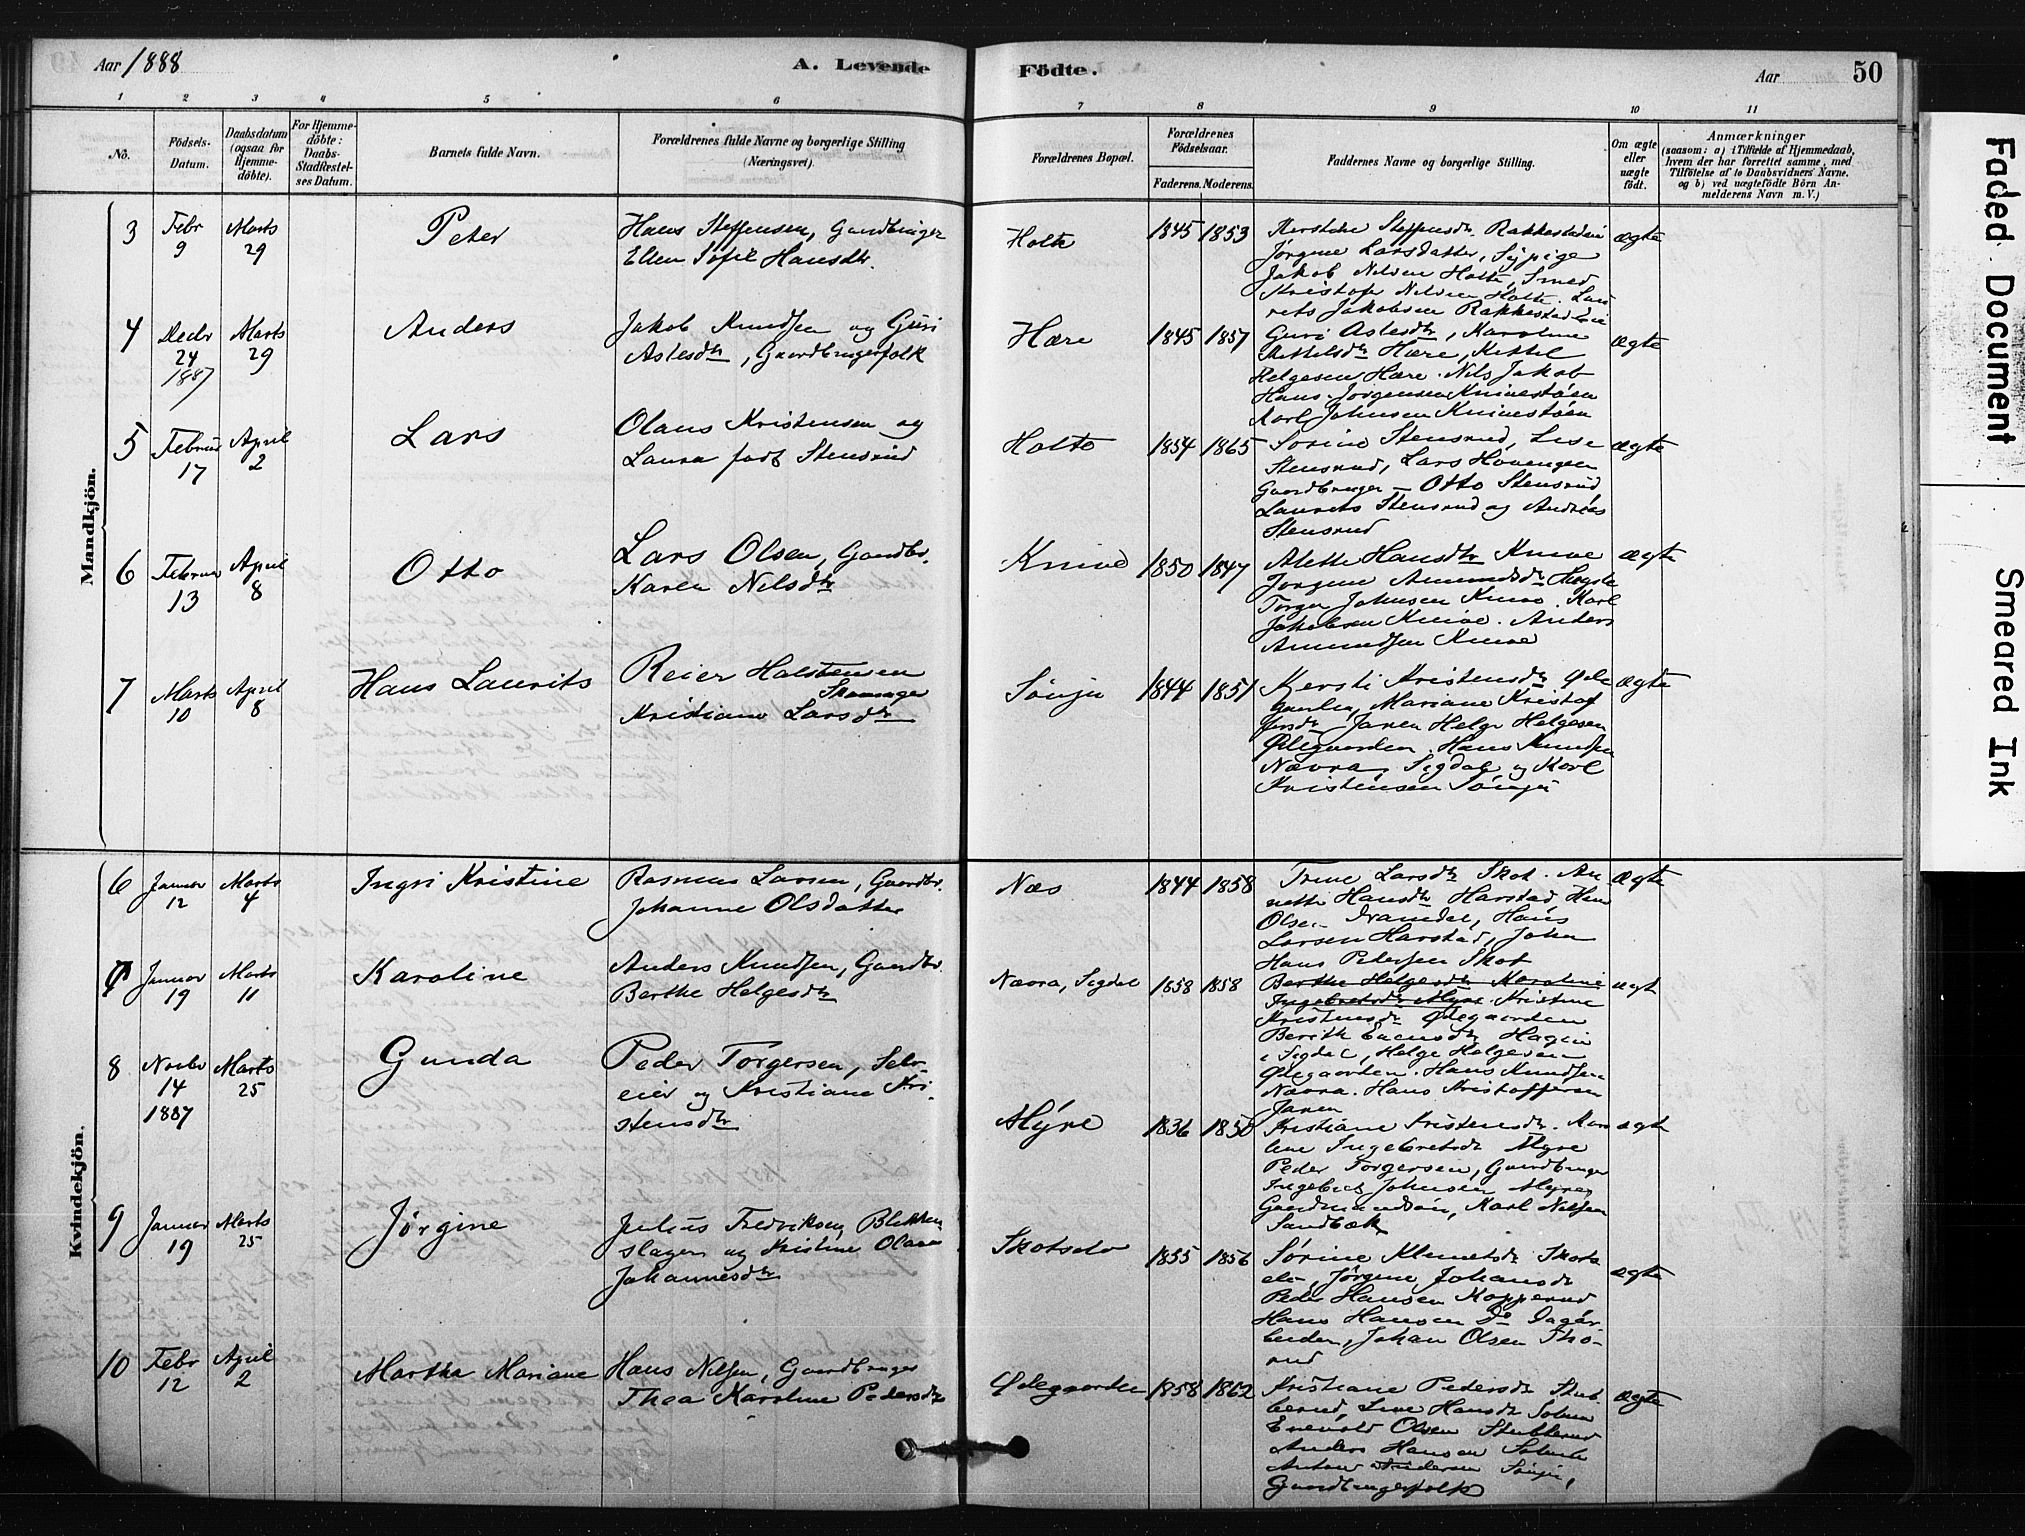 Aar 1888
A. Levende Födte.
Aar
50
1 2 3 4 5 6 7 8 9 10 11
No.
Födsels-Datum.
Daabsdatum (ogsaa for Hjemme-döbte).
For Hjemme-döbte: Daabs-Stadfæstel-ses Datum.
Barnets fulde Navn.
Forældrenes fulde Navne og borgerlige Stilling (Næringsvei).
Forældrenes Bopæl.
Forældrenes Födselsaar.
Faderens. Moderens.
Faddernes Navne og borgerlige Stilling.
Om ægte eller uægte födt.
Anmærkninger
(saasom: a) i Tilfælde af Hjemmedaab,
hvem der har forrettet samme, med
Tilföielse af to Daabsvidners Navne.
og b) ved uægtefödte Börn An-
melderens Navn m. V.)
Mandkjön.
3 Febr 9 Marts 29 Peter
Hans Steffensen, Gaardbruger
Ellen Sofie Hansdtr.
Holte 1845 1853
Kerstine Steffensdtr Rakkestadeie
Jørgine Larsdatter, Sypige
Jakob Nilsen Holte, Smed
Kristofer Nilsen Holte. Lau
rets Jakobsen Rakkestadeie
ægte
4 Decbr 24 1887 Marts 29 Anders
Jakob Knudsen og Guri
Astesdtr, Gaardbrugerfolk
Hære 1845 1857
Guri Astesdtr, Karoline
Kettelsdtr Hære, Kettel
Helgesen Hære. Nils Jakob
Hans Jørgensen Knivestøen
Karl Johnsen Knivestøen
ægte
5 Februar 17 April 2 Lars
Olaus Kristensen og
Laura født Stensrud
Holte 1854 1865
Sorine Stensrud, Lise
Stensrud, Lars Hovengen
Gaardbruger - Otto Stensrud
Laurits Stensrud og Andreas
Stensrud
ægte
6 Februar 13 April 8 Otto
Lars Olsen, Gaardbr.
Karen Nilsdtr
Knive 1850 1847
Alette Hansdtr Knive
Jørgine Amundsdtr
Torger Johnsen Knive. Karl
Jakobsen Knive. Anders
Amundsen Knive
ægte
7 Marts 10 April 8 Hans Laurits
Reier Halstensen
Skomager
Kristiane Larsdtr
Sønju 1844 1851
Kjersti Kristensdtr Øde
gaarden, Mariane Kristof
fersdtr Jaren Helge Helgesen
Ødegaarden. Hans Knudsen
Nævra, Sigdal og Karl
Kristensen Sønju
ægte
Kvindekjön.
6 Januar 12 Marts 4 Ingri Kristine
Rasmus Larsen, Gaardbr.
Johanne Olsdatter
Næs 1844 1858
Trine Larsdtr Skot. An
nette Hansdtr Harstad, Hans
Olsen Framdal, Hans
Larsen Harstad, John
Hans Petersen Skot
ægte
7 Januar 19 Marts 11 Karoline
Anders Knudsen, Gaardbr.
Berthe Helgesdtr
Nævra, Sigdal 1858 1858
Berthe Helgesdtr Karoline
Ingebretsdtr Myre Kristine
Kristensdtr Ødegaarden
Berith Evensdtr Hagen
i Sigdal, Helge Helgesen
Ødegaarden. Hans Knudsen
Nævra. Hans Kristoffersen
Jaren
ægt
8 Novbr 14 1887 Marts 25 Gunda
Peder Torgersen, Selv-
eier og Kristiane Kri
stensdtr
Myre 1836 1850
Kristiane Kristensdtr. Kar
line Ingebretsdtr Myre
Peder Torgersen, Gaardbruger
Ingebret Johnsen Myre,
Gaardmandsøn, Karl Nilsen
Sandbæk
ægt
9 Januar 19 Marts 25 Jørgine
Julius Fredriksen, Blikken
slager og Kristine Olava
Johannesdtr
Skotselv 1855 1856
Sørine Klemetsdtr Skots
elv, Jørgine Johansdtr
Peder Hansen Kopperud
Hans Hansen Do Dagar
beider, Johan Olsen
rud
ægte
10 Febr 12 April 2 Martha Mariane
Hans Nilsen, Gaardbruger
Thea Karoline Pedersdtr
Ødegaarden 1858 1862
Kristiane Pedersdtr Stub
berud, Line Hansdtr
Enevold Olsen Stubberud
Anders Hansen
Anton Andersen Sønju,
Gaardbrugerfolk
ægte
Faded Document
Smeared Ink